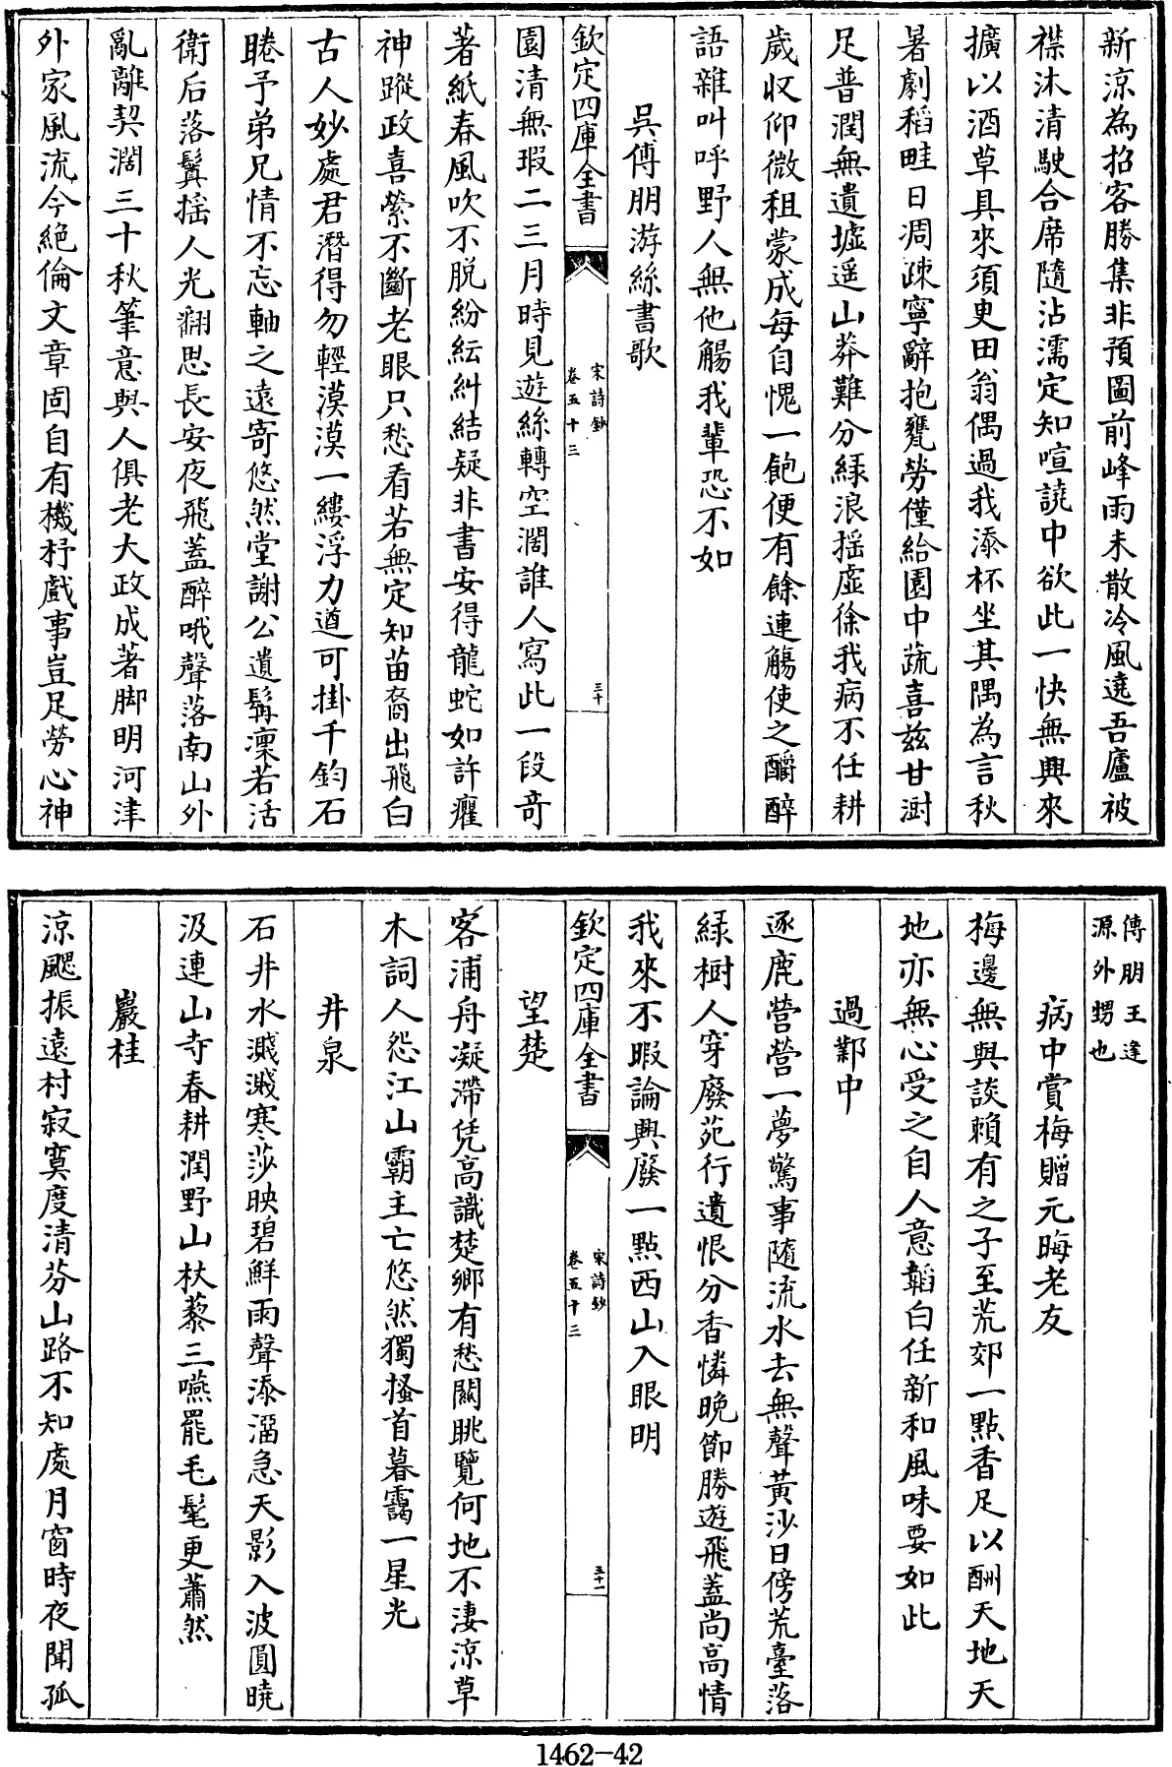 新涼為招客勝集非預圖前峰雨未散冷風遶吾廬被
襟沐清駛合席隨沾濡定知喧譊中欲此一快無興來
擴以酒草具來須臾田翁偶過我添杯坐其隅為言秋
暑劇稻畦日凋疎寧辭抱甕勞僅給園中蔬喜兹甘澍
足普潤無遺墟遥山莽難分緑浪摇虚徐我病不任耕
歲收仰微租蒙成每自愧一飽便有餘連觴使之釂醉
語雜叫呼野人無他觴我輩恐不如
吳傅朋游絲書歌
欽定四庫全書
宋詩鈔
卷五十三
三十
園清無瑕二三月時見遊絲轉空濶誰人寫此一段奇
著紙春風吹不脱紛紜糾結疑非書安得龍蛇如許癯
神蹤政喜縈不斷老眼只愁看若無定知苗裔出飛白
古人妙處君潛得勿輕漠漠一縷浮力遒可掛千鈞石
睠予弟兄情不忘軸之遠寄悠然堂謝公遺髯凜若活
衛后落鬒摇人光翻思長安夜飛蓋醉哦聲落南山外
亂離契濶三十秋筆意與人俱老大政成著脚明河津
外家風流今絶倫文章固自有機杼戲事豈足勞心神
傅朋王逢
源外甥也
病中賞梅贈元晦老友
梅邊無與談賴有之子至荒郊一點香足以酬天地天
地亦無心受之自人意韜白任新和風味要如此
過鄴中
逐鹿營營一夢驚事隨流水去無聲黃沙日傍荒臺落
緑樹人穿廢苑行遺恨分香憐晚節勝遊飛蓋尚高情
我來不暇論興廢一點西山入眼明
欽定四庫全書
宋詩鈔
卷五十三
三十一
望楚
客浦舟凝滯凭高識楚鄉有愁闗眺覽何地不淒涼草
木詞人怨江山霸主亡悠然獨搔首暮靄一星光
井泉
石井水濺濺寒莎映碧鮮雨聲添溜急天影入波圓曉
汲連山寺春耕潤野山杖藜三嚥罷毛髦更蕭然
巖桂
涼颸振遠村寂寞度清芬山路不知處月窗時夜聞孤
1462-42